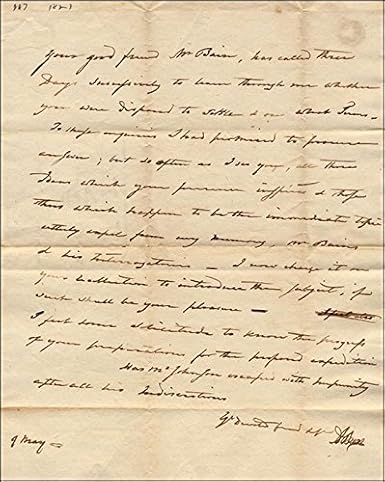 Your good friend Mr Bain, has called three
Days successively to learn through me whether
you were disposed to settle & on what Terms -
To these enquiries I had promised to procure
answers; but so often as I see you, all those
Ideas which your presence inspires & those
then which happen to be the immediate topic
utterly expel from my memory, Mr Bain
& his Interrogatories — I now charge it on
your to introduce the subject, if
such shall be your pleasure —
I feel some solicitude to know the progress
of your preparations for the proposed expedition
Has Mr Johnson escaped with impunity
after all his Indiscretions
Yr devoted friend
9 May